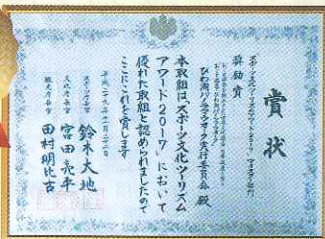 賞状
奨励賞
びわ湖パラマウオータ実行委員会 殿
本取組はスポーツ文化ツーリズム
アワード2017において
優れた取組と認められましたので
ここにこれを賞します
平成二十九年十一月二十二日
スポーツ庁長官
鈴木大地
文化庁長官
宮田亮平
観光庁長官
田村明比古